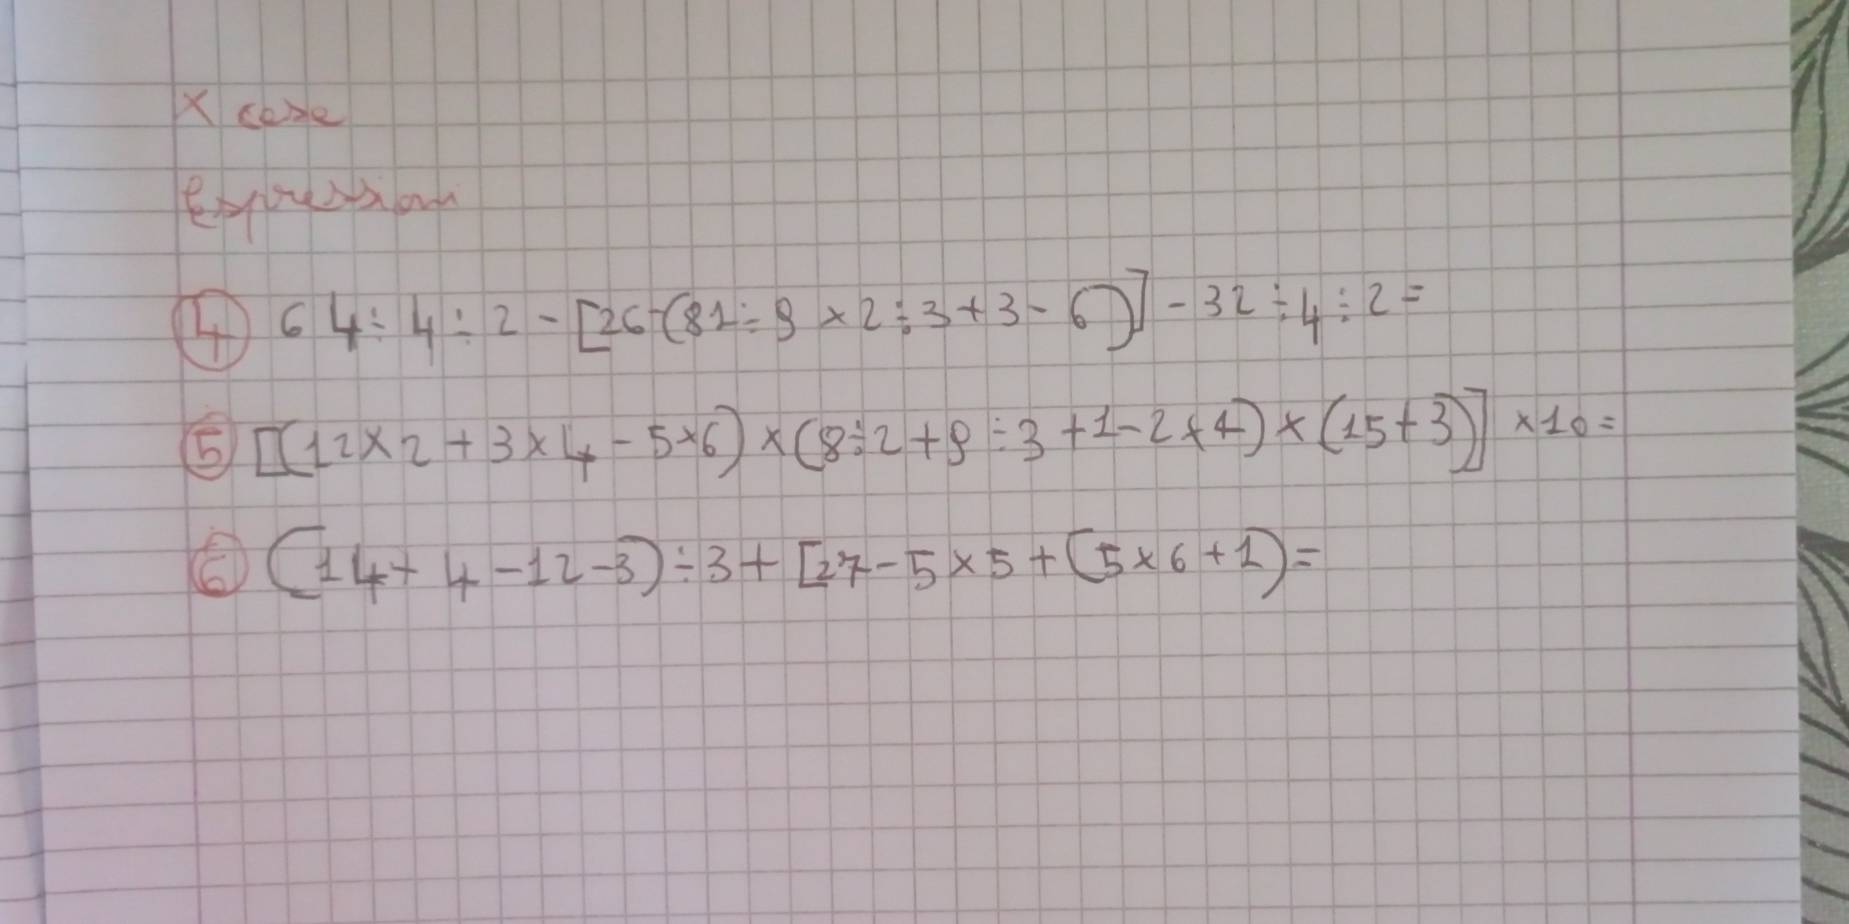 X case
Expression
④ 64÷4÷2-[26-(81÷9×2÷3+3-6)]-32÷4÷2=
⑤ [(12×2+3×4-5×6)×(8÷2+9÷3+1-2×4)×(15+3)]×10=
⑥ (14+4-12-3)÷3+[27-5×5+(5×6+1)=